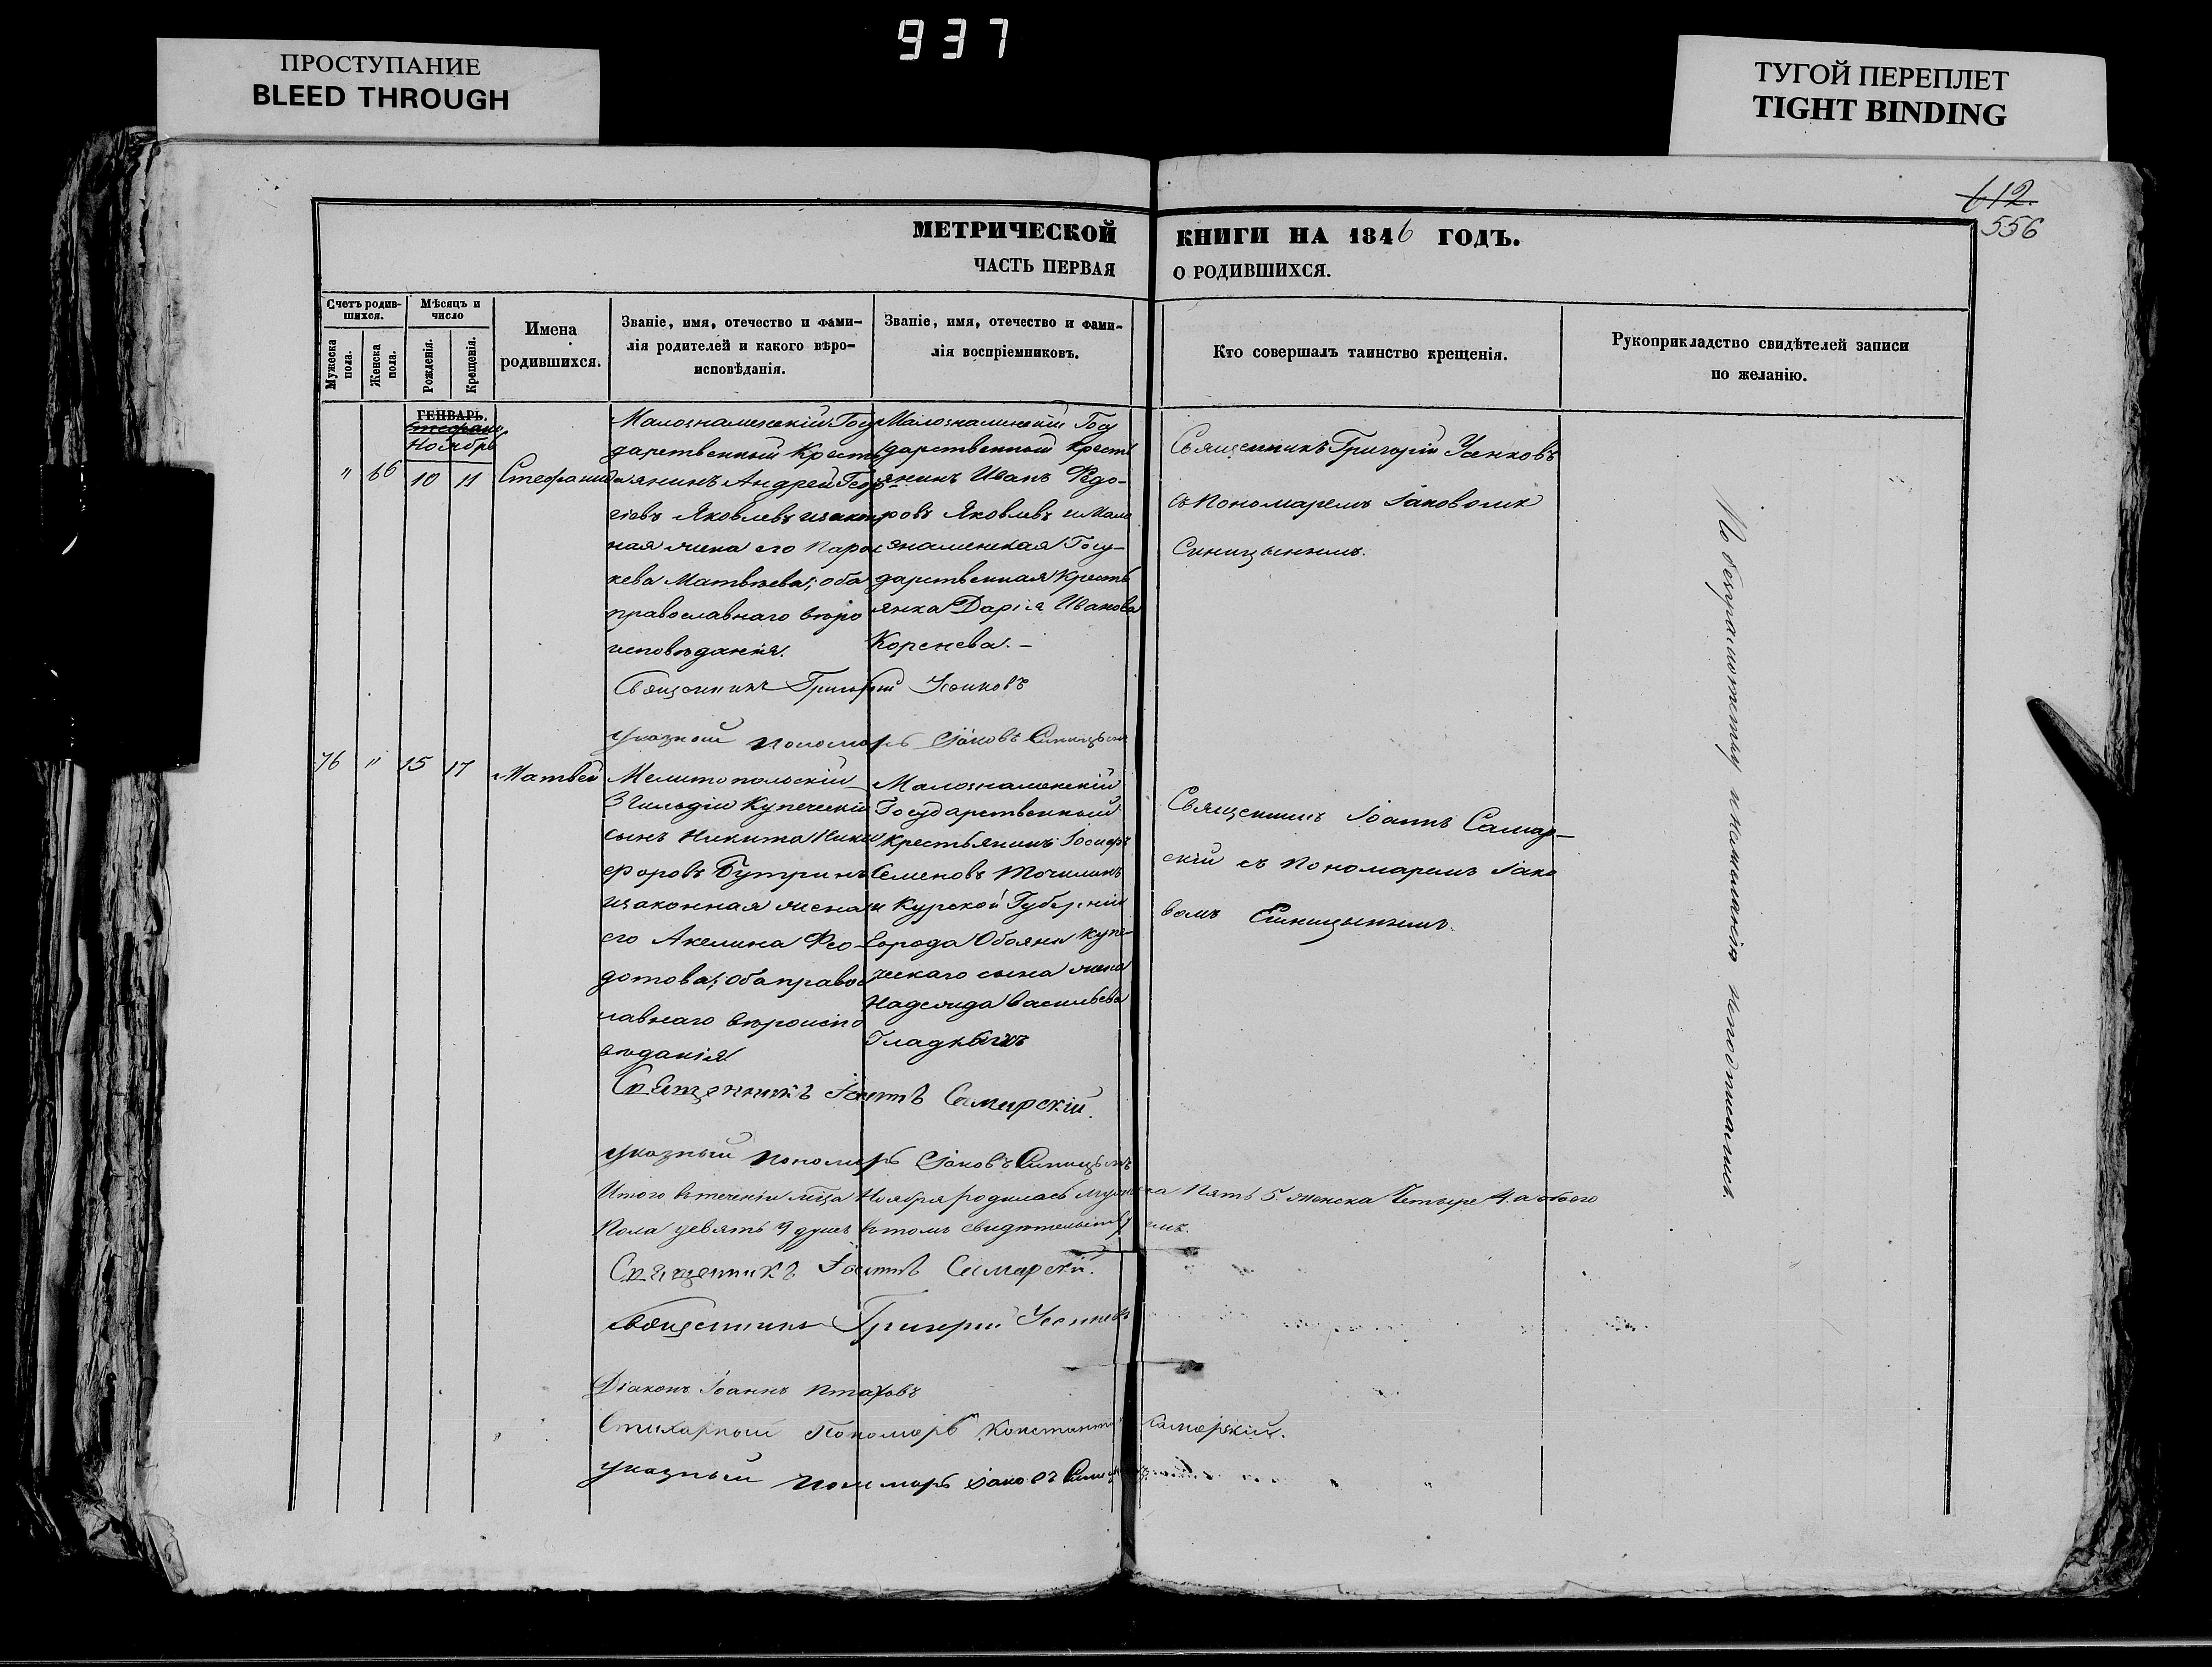 937
ПРОСТУПАНИЕ
BLEED THROUGH
ТУГОЙ ПЕРЕПЛЕТ
TIGHT BINDING
612.
556
МЕТРИЧЕСКОЙ КНИГИ НА 1846 ГОДЪ.
ЧАСТЬ ПЕРВАЯ О РОДИВШИХСЯ.
Счетъ родив-
шихся.
Мужеска пола.
Женска пола.
Мѣсяцъ и
число
Рожденія.
Крещенія.
Имена
родившихся.
Званіе, имя, отечество и фами-
лія родителей и какого вѣро-
исповѣданія.
Званіе, имя, отечество и фами-
лія воспріемниковъ.
Кто совершалъ таинство крещенія.
Рукоприкладство свидѣтелей записи
по желанію.
ГЕНВАРЬ.
Ноябрь
" 66 10 11 Стефанида
Малознаменскій Госу
дарственный Кресть
янинъ Андрей Геор
гіевъ Яковлевъ изакон
ная жена его Парас
кева Матвѣева; оба
православнаго вѣро
исповѣданія.
Малознаменскій Госу
дарственный Кресть
янинъ Иванъ Ѳедо-
ровъ Яковлевъ и Мало
знаменская Госу-
дарственная Кресть
янка Дарія Иванова
Коренева.-
Священникъ Григорій Усенковъ
съ Пономаремъ Іаковомъ
Синицынымъ.
Священникъ Григорій Усенковъ
Указный пономарь Іаковъ Синицынъ
76 " 15 17 Матвей
Мелитопольскій
3 Гильдіи Купеческій
сынъ Никита Ники
форовъ Бутринъ
изаконная жена
его Акелина Ѳео-
дотова; оба правос
лавнаго вѣроиспо
вѣданія
Малознаменскій
Государственный
крестьянинъ Іосифъ
Семеновъ Точилинъ
и Курской Губерніи
города Обояни купе-
ческаго сына жена
Надежда Васильева
Гладкихъ
Священникъ Іоаннъ Самар-
скій съ Пономаремъ Іако
вомъ Синицынымъ.
Священникъ Іоаннъ Самарскій.
Указный пономарь Іаковъ Синицынъ
Итого втеченіи мѣсяца Ноября родилась мужеска Пять 5. женска Четыре 4. а обоего
Пола девять 9 душъ втомъ свидѣтельствуемъ.
Священникъ Іоаннъ Самарскій.
Священникъ Григорій Усенковъ
Діаконъ Іоаннъ Птаховъ
Стихарный Пономарь Константинъ Самарскій.
Указный пономарь Іаковъ Синицынъ
По безграмотству неподписались.